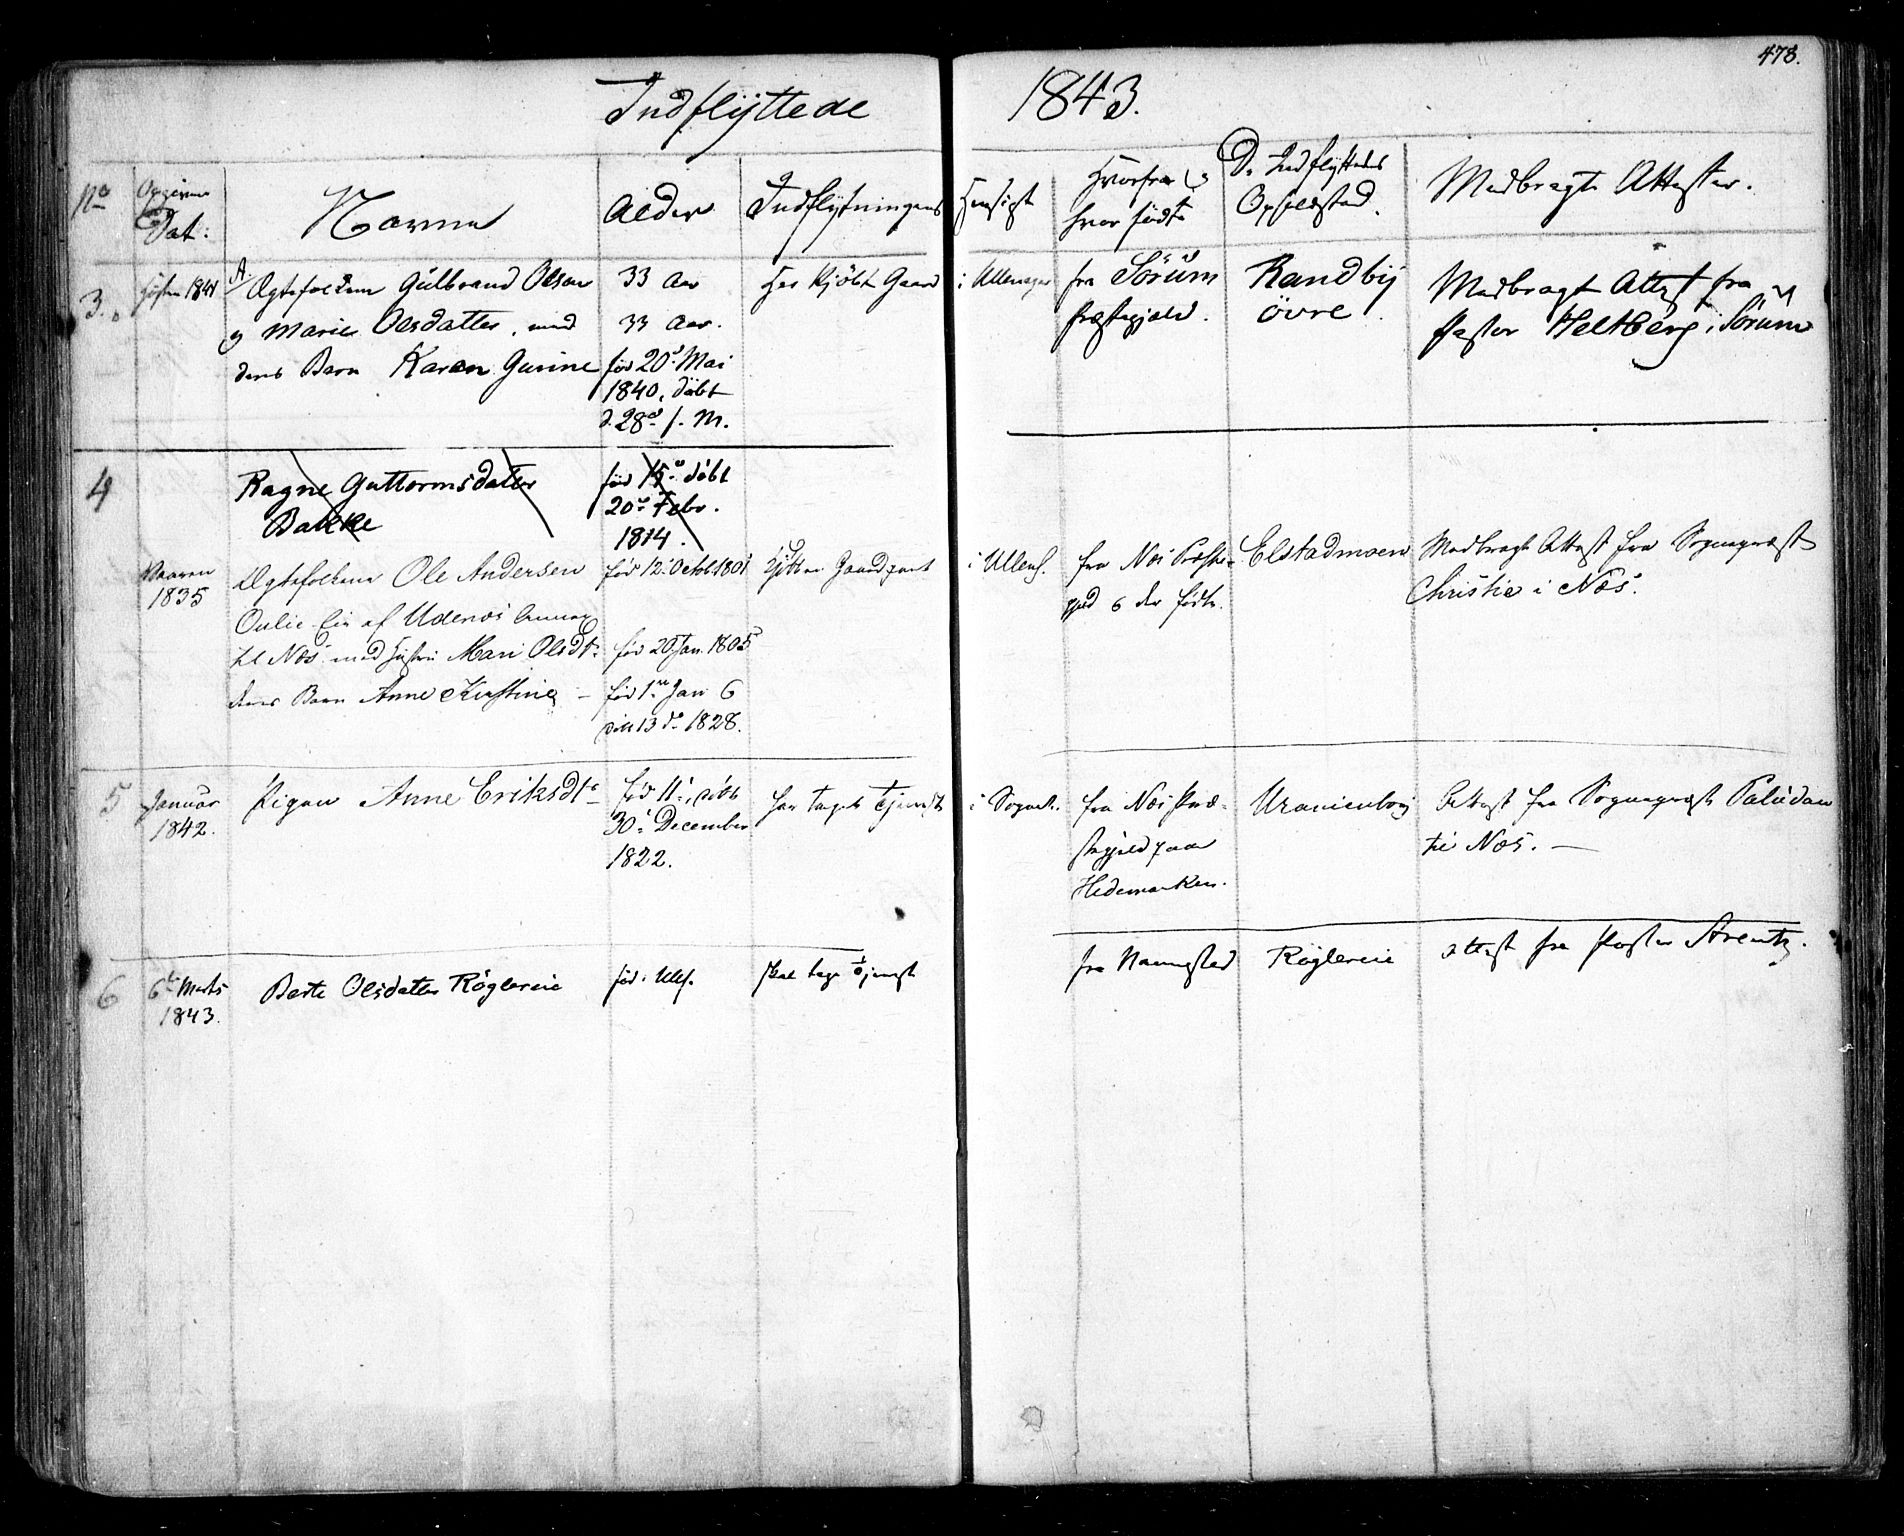 478.
Indflyttede 1843.
No
Opgivne Dat:
Navne
Alder
Indflytningens Hensigt
Hvorfra og hvor födte
De Indflyttedes Opholdsted.
Medbragte Attester.
3.
Hösten 1841
Ægtefolkene Gulbrand Olsen
og Marie Olsdatter, med
deres Barn Karen Gurine
33 Aar
33 Aar.
föd 20d Mai
1840, döbt
d. 28d s. M.
Har kjöbt Gaard i Ullensager
fra Sörum
Præstegjæld.
Randbÿ
övre.
Medbragt Attest fra
Pastor Heltberg i Sörum
4
Ragne Guttormsdatter
Bakke
föd 15de döbt
20de Febr.
1814.
Vaaren
1835
Ægtefolkene Ole Andersen
af Udenæs Annex
til Næs med Hustru Mari Olsdtr
deres Barn Anne Kirstine –
föd 12 Octob 1801
föd 20 Jan. 1805
föd 1ste Jan og
döbt 13 do 1828.
Kjöbt en Gaardpart i Ullens.
fra Næs Præste-
gjeld og der födte.
Elstadmoen
Medbragt Attest fra Sognepræst
Christie i Næs.
5
Januar
1842.
Pigen Anne Eriksdtr
föd 11te, döbt
30te December
1822.
har taget Tjeneste i Sognet.
fra Næs Præ-
stegjeld paa
Hedemarken.
Uranienborg
Attest fra Sognepræst Paludan
til Næs. —
6
6te Marts
1843.
Berte Olsdatter Röglereie
föd i Ulls.
skal tage Tjenest
fra Nannestad
Röglereie
Attest fra Pastor Arentz.